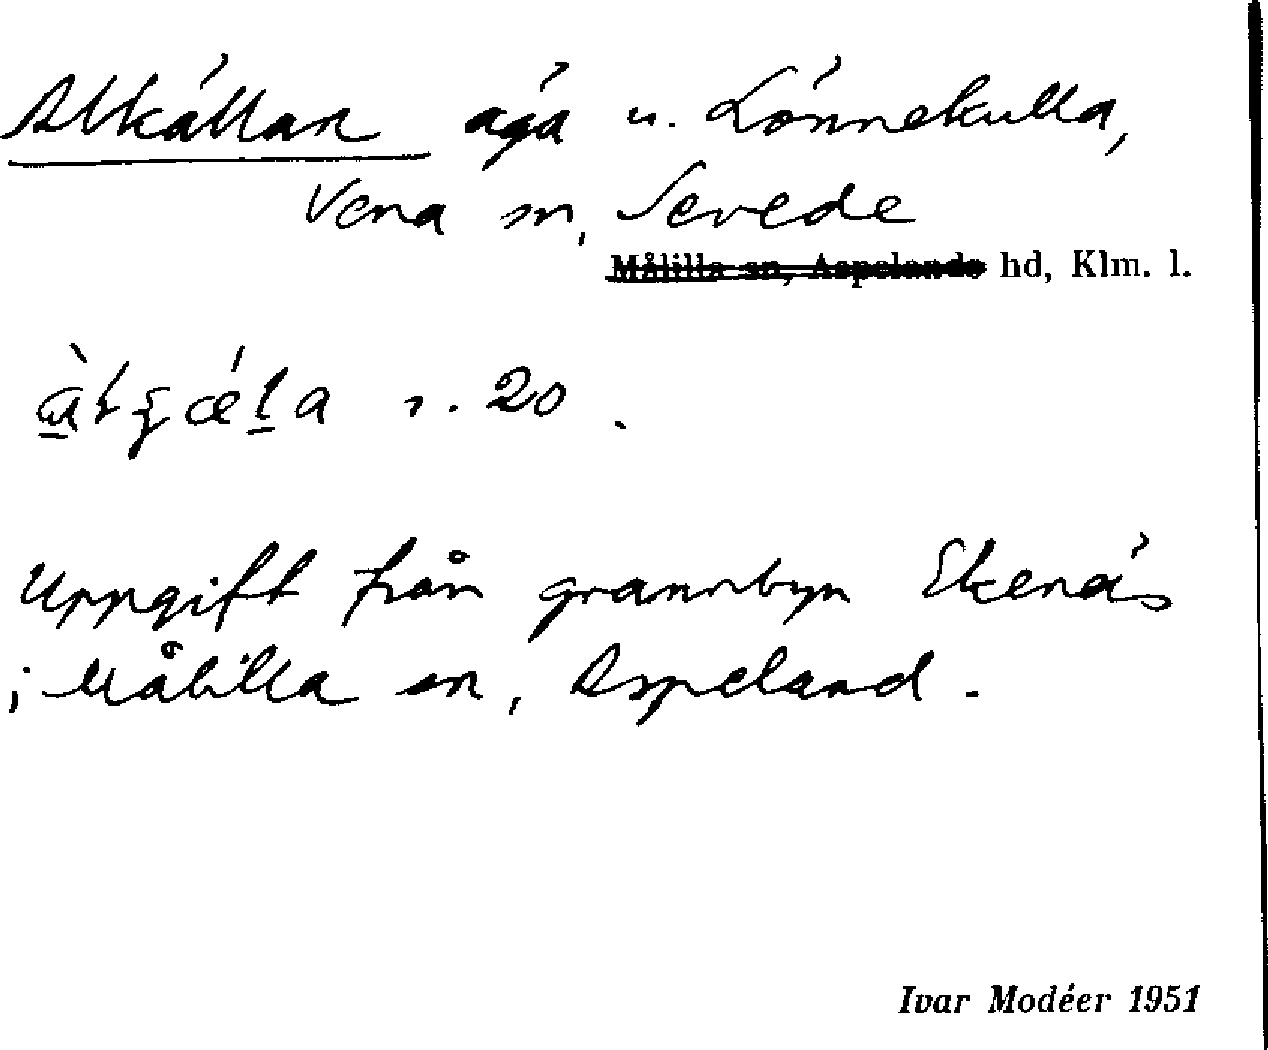 Alkällan äga u. Lönnekulla,
Vena sn, Sevede
Målilla sn, Aspelands hd, Klm. l.
r. 20.
Uppgift från grannbyn Ekenäs
i Målilla sn, Aspeland.
Ivar Modéer 1951